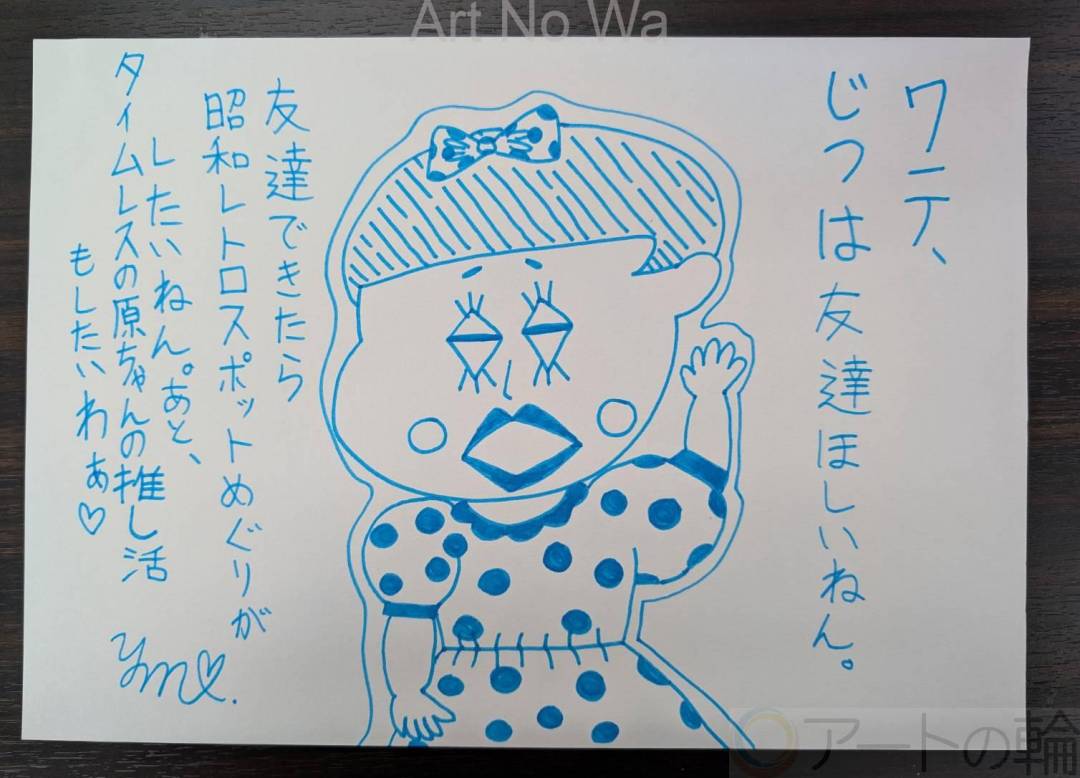 Art No Wa
ワテ、
じつは友達ほしいねん。
友達できたら
昭和レトロスポットめぐりが
したいねん。あと、
タイムレスの原ちゃんの推し活
もしたいわぁ♡
アートの輪